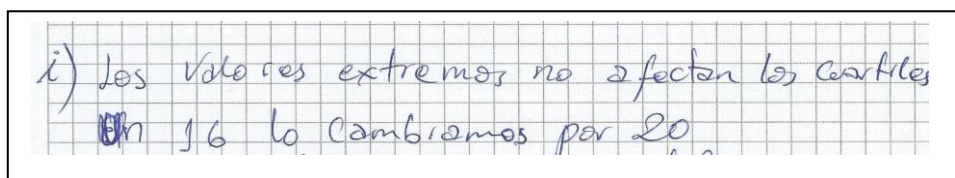 i) Los valores extremos no afectan los cuartiles
Un 16 lo cambiamos por 20